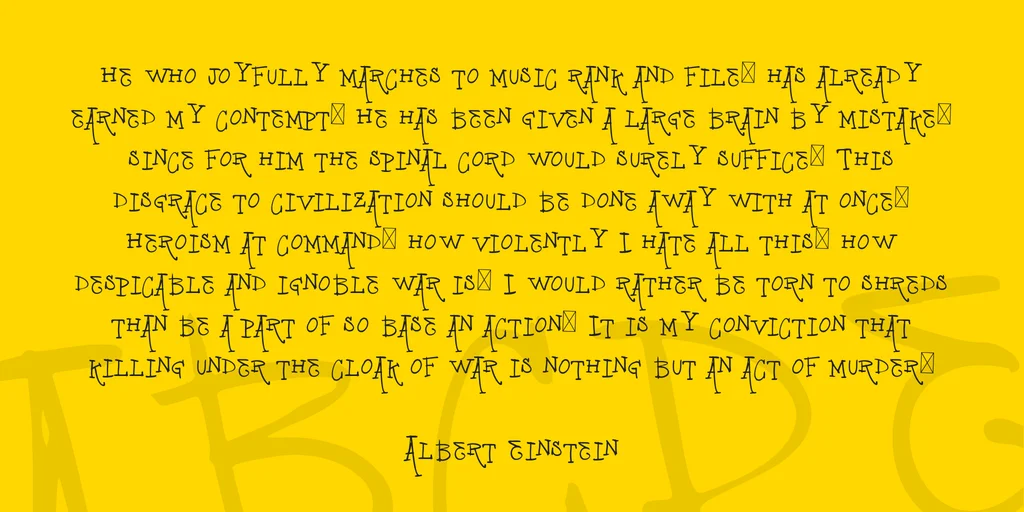 HE WHO JOYFULLY MARCHES TO MUSIC RANK AND FILE▯ HAS ALREADY
EARNED MY CONTEMPT▯ HE HAS BEEN GIVEN A LARGE BRAIN BY MISTAKE▯
SINCE FOR HIM THE SPINAL CORD WOULD SURELY SUFFICE▯ THIS
DISGRACE TO CIVILIZATION SHOULD BE DONE AWAY WITH AT ONCE▯
HEROISM AT COMMAND▯ HOW VIOLENTLY I HATE ALL THIS▯ HOW
DESPICABLE AND IGNOBLE WAR IS▯ I WOULD RATHER BE TORN TO SHREDS
THAN BE A PART OF SO BASE AN ACTION▯ IT IS MY CONVICTION THAT
KILLING UNDER THE CLOAK OF WAR IS NOTHING BUT AN ACT OF MURDER▯
ALBERT EINSTEIN
ABCDE